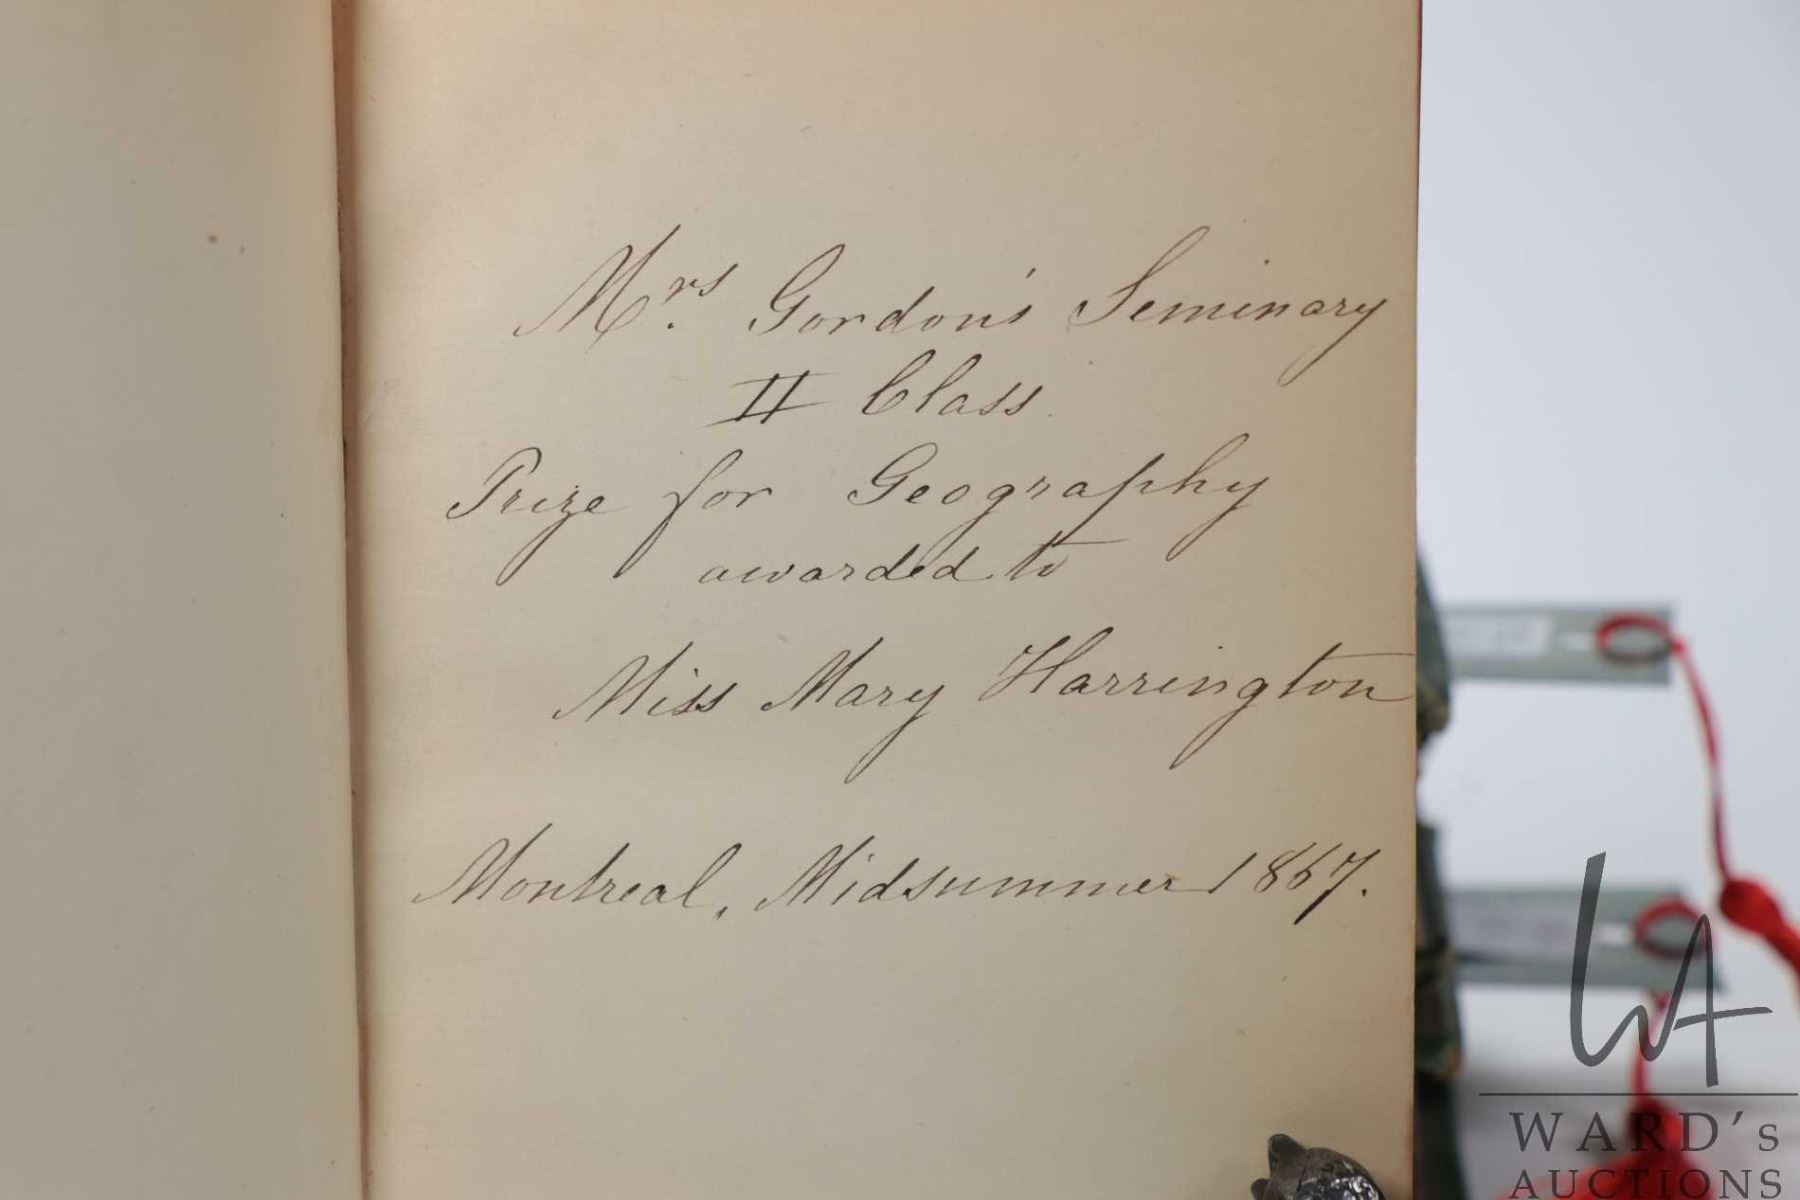 Mrs. Gordon's Seminary
II Class.
Prize for Geography
awarded to
Miss Mary Harrington
Montreal, Midsummer 1867.
WARD's
AUCTIONS